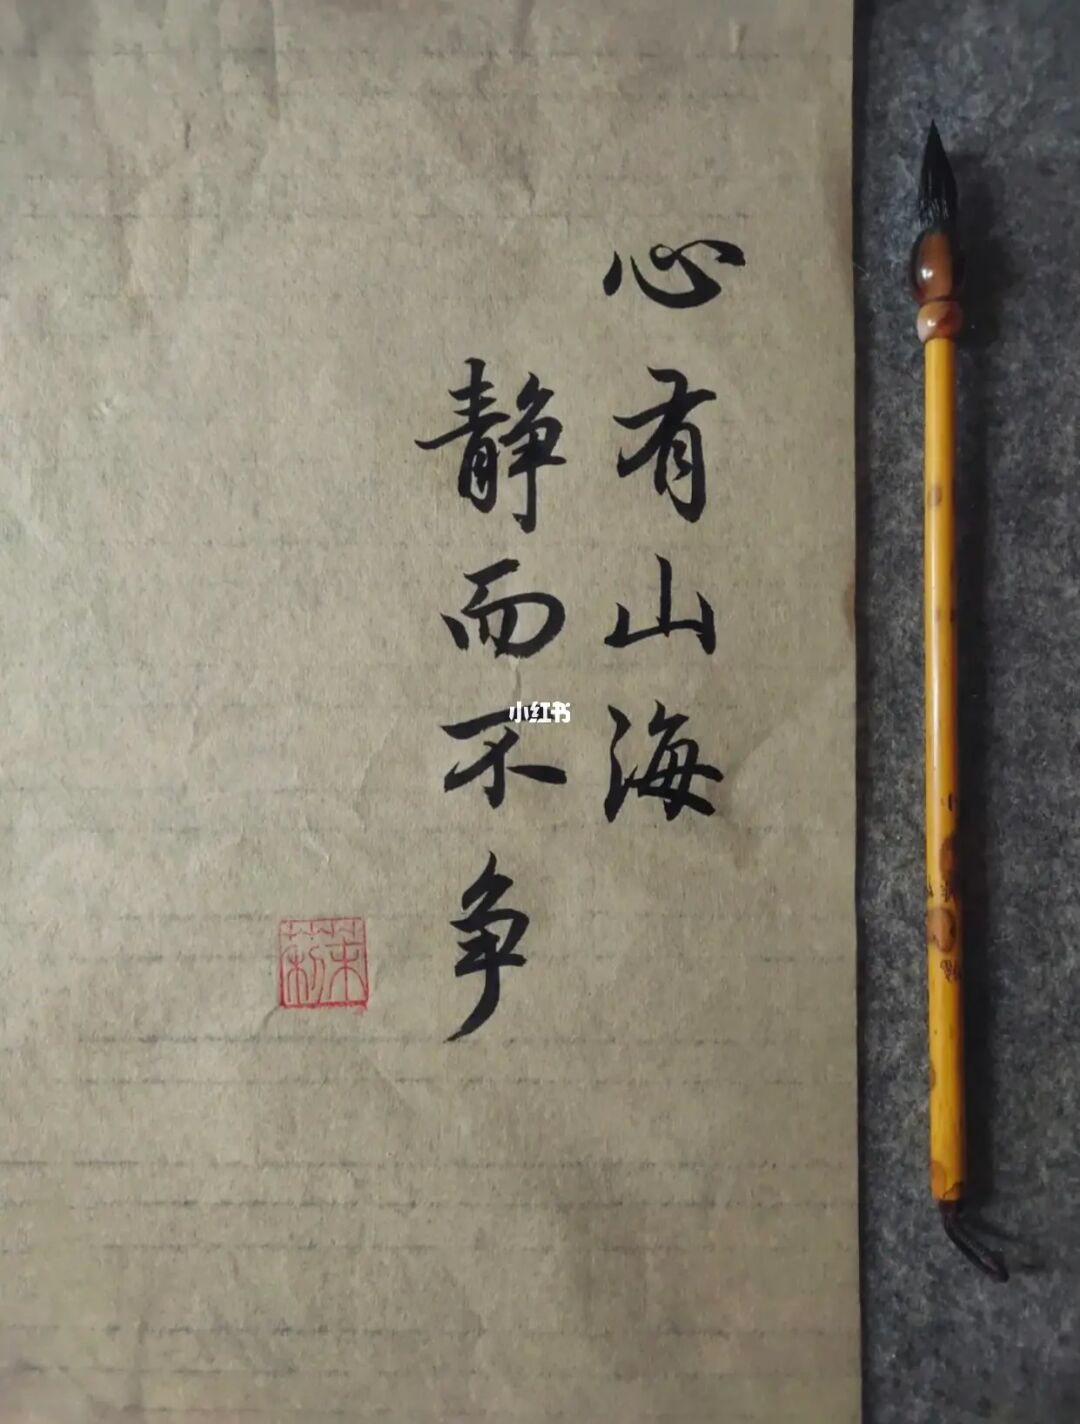 心有山海
静而不争
小红书